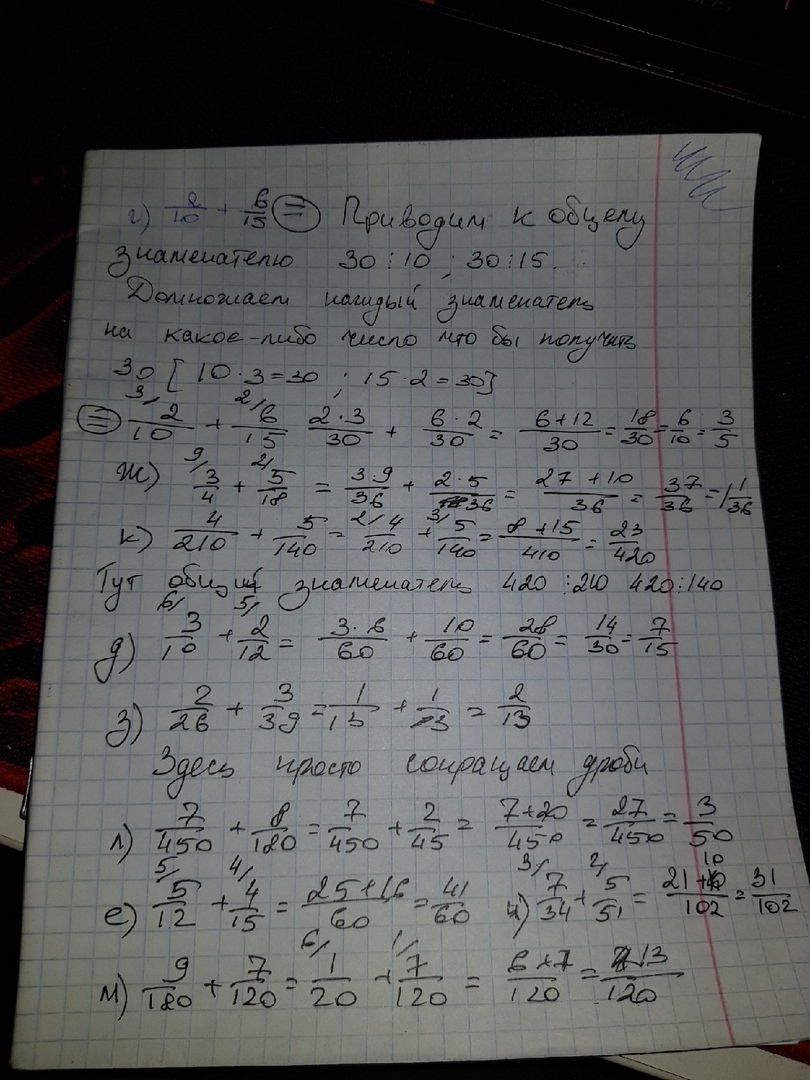 г) 2/10 + 6/15 = Приводим к общему
знаменателю 30:10 ; 30:15.
Домножаем каждый знаменатель
на какое-либо число что бы получить
30 [10·3=30 ; 15·2=30]
= 3/ 2/10 + 2/ 6/15 2·3/30 + 6·2/30 = 6+12/30 = 18/30 = 6/10 = 3/5
ж) 9/ 3/4 + 2/ 5/18 = 3·9/36 + 2·5/36 = 27+10/36 = 37/36 = 1 1/36
к) 4/210 + 5/140 = 2/ 4/210 + 3/ 5/140 = 8+15/410 = 23/420
Тут общий знаменатель 420:210 420:140
д) 6/ 3/10 + 5/ 2/12 = 3·6/60 + 10/60 = 28/60 = 14/30 = 7/15
з) 2/26 + 3/39 = 1/13 + 1/13 = 2/13
Здесь просто сокращаем дроби
л) 7/450 + 8/180 = 7/450 + 2/45 = 7+20/450 = 27/450 = 3/50
е) 5/ 5/12 + 4/ 4/15 = 25+16/60 = 41/60 и) 3/ 7/34 + 2/ 5/51 = 21+10/102 = 31/102
м) 9/180 + 7/120 = 6/ 1/20 + 1/ 7/120 = 6+7/120 = 13/120